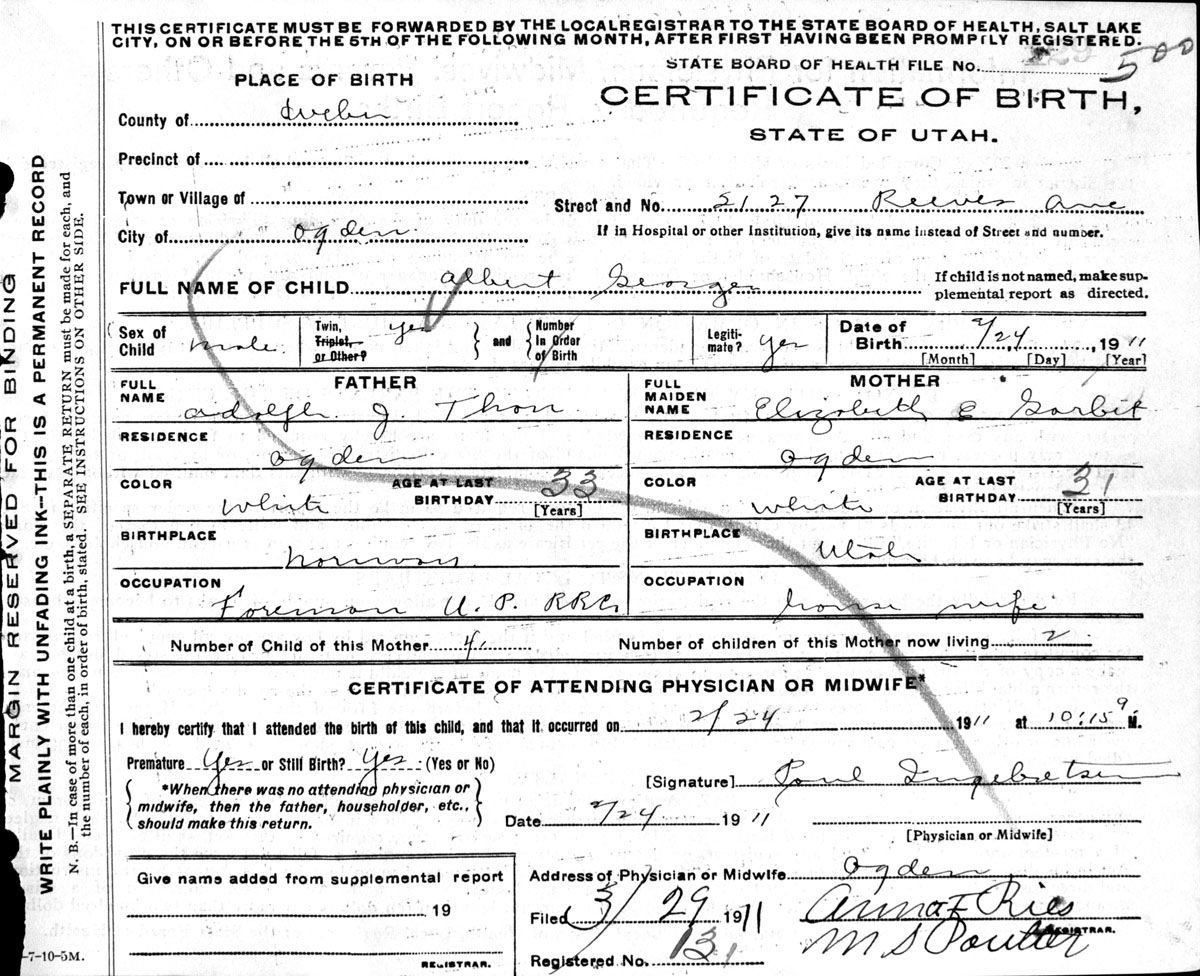 THIS CERTIFICATE MUST BE FORWARDED BY THE LOCAL REGISTRAR TO THE STATE BOARD OF HEALTH, SALT LAKE
CITY, ON OR BEFORE THE 5TH OF THE FOLLOWING MONTH, AFTER FIRST HAVING BEEN PROMPTLY REGISTERED.
STATE BOARD OF HEALTH FILE NO. 500
PLACE OF BIRTH
CERTIFICATE OF BIRTH,
STATE OF UTAH.
County of Weber
Precinct of
Town or Village of
Street and No. 2127 Reeves Ave
City of Ogden
If in Hospital or other Institution, give its name instead of Street and number.
FULL NAME OF CHILD Albert George
If child is not named, make sup-
plemental report as directed.
Sex of Child male
Twin, Triplet, or Other? yes
and
Number In Order of Birth
Legiti-mate? yes
Date of Birth 2/24 1911
[Month] [Day] [Year]
FATHER
MOTHER
FULL NAME Adolph J. Thon
FULL MAIDEN NAME Elizabeth E
RESIDENCE Ogden
RESIDENCE Ogden
COLOR White
AGE AT LAST BIRTHDAY 33 [Years]
COLOR White
AGE AT LAST BIRTHDAY 31 [Years]
BIRTHPLACE Norway
BIRTHPLACE Utah
OCCUPATION Foreman U. P. RR Co
OCCUPATION house wife
Number of Child of this Mother 4
Number of children of this Mother now living 2
CERTIFICATE OF ATTENDING PHYSICIAN OR MIDWIFE*
I hereby certify that I attended the birth of this child, and that it occurred on 2/24 1911 at 10:15 M.
Premature Yes or Still Birth? Yes (Yes or No)
*When there was no attending physician or
midwife, then the father, householder, etc.,
should make this return.
[Signature] Paul Ingebretsen
Date 2/24 1911
[Physician or Midwife]
Give name added from supplemental report
19
REGISTRAR.
Address of Physician or Midwife Ogden
Filed 3/29 1911
Anna F Ries
Registered No. 131
M S Poulter
REGISTRAR.
-7-10-5M.
MARGIN RESERVED FOR BINDING
WRITE PLAINLY WITH UNFADING INK—THIS IS A PERMANENT RECORD
N. B.—In case of more than one child at a birth, a SEPARATE RETURN must be made for each, and
the number of each, in order of birth, stated. SEE INSTRUCTIONS ON OTHER SIDE.